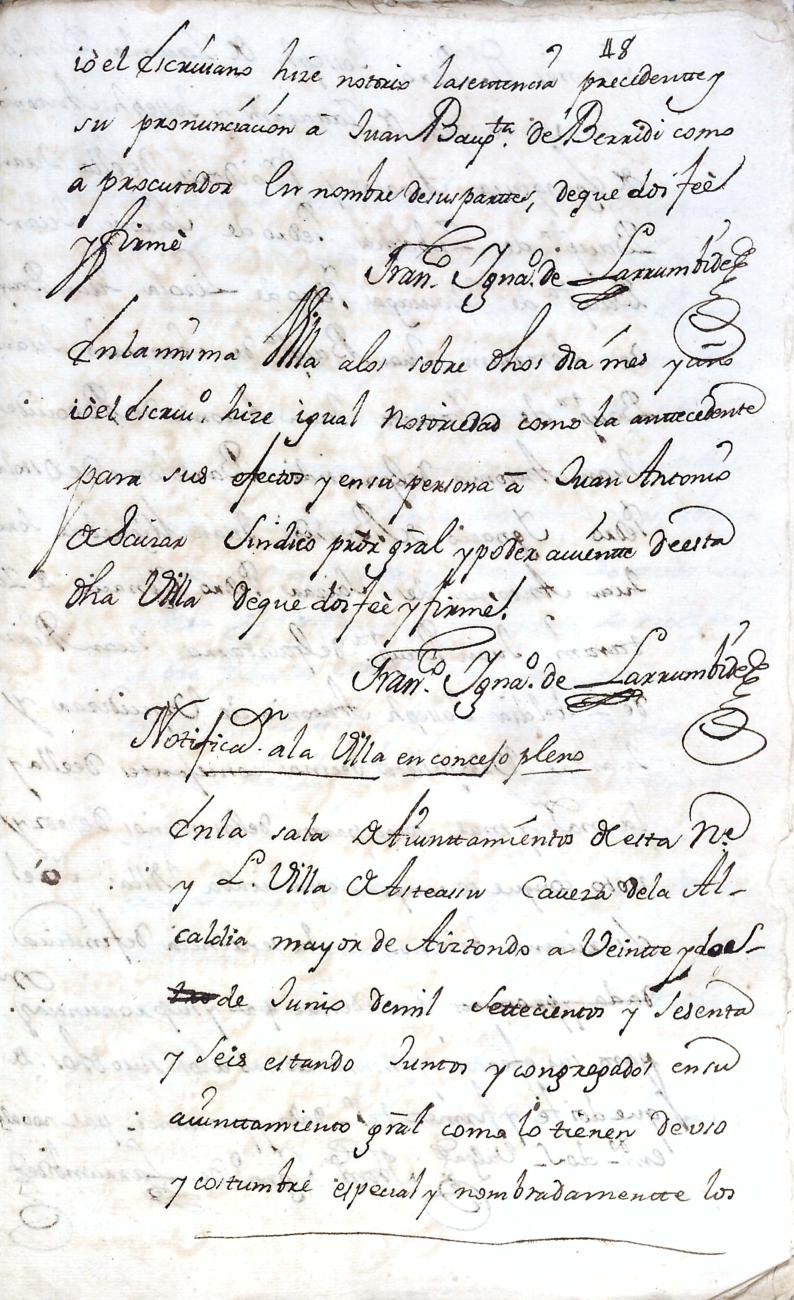 48
iò el Escriuano hize notorio la sentencia precidentte y
su pronunciación â Juan Baupta. de Berridi como
â procurador En nombre de sus parttes, de que doi feè
y firmè
Franco. Ignao. de Larrumbide
En la misma Villa a los sobre dhos dia mes y año
iò el Escriuo. hize igual Nottoriedad como la anttecedente
para sus efectos y en su persona â Juan Antonio
de Sin﻿dico prõr grãl y poder auientte de esta
dha Villa de que doi feè y firmè!
Franco. Ignao. de Larrumbide
Notificaon. a la Villa en consejo pleno
En la sala de Aiunttamientos de esta Ne.
y L. Villa de Asteassu Caueza de la Al-
caldia mayor de Aiztondo a Veintte y dos
de Junio de mil Settecientos y Sesenta
y Seis estando Juntos y congregados en su
aiunttamiento grãl como lo tienen de uso
y costumbre especial y nombradamentte los